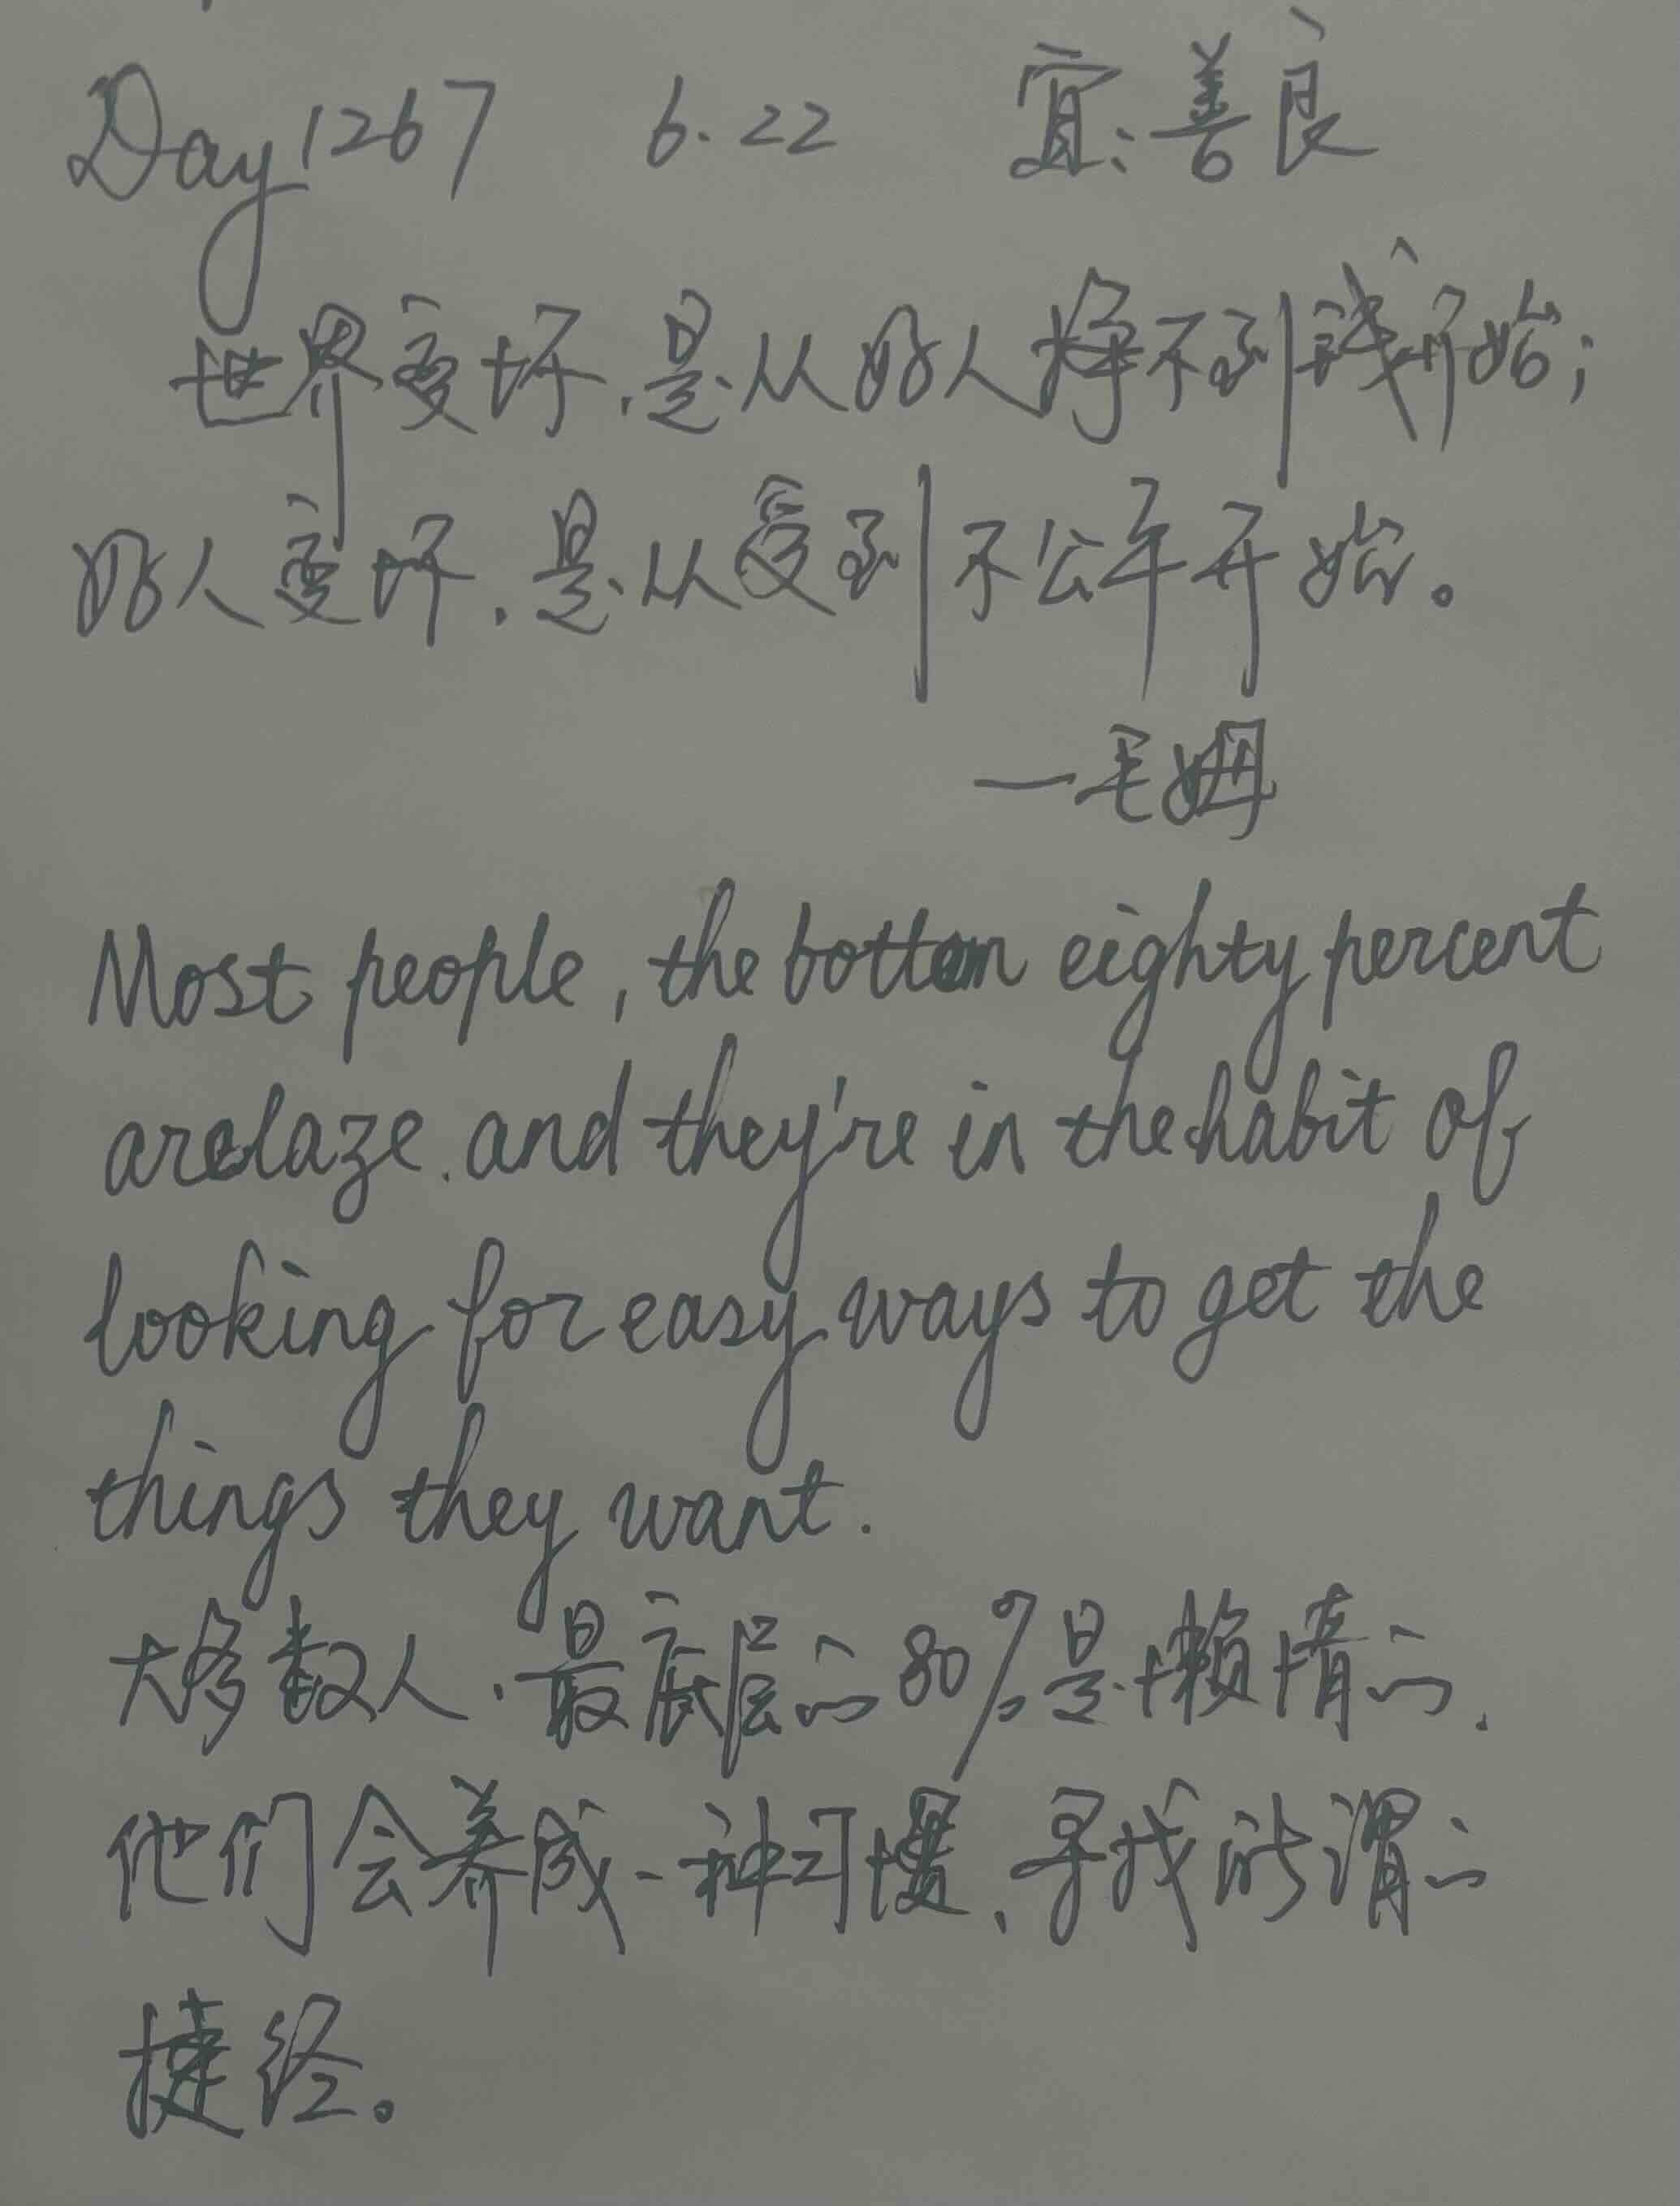 Day 1267 6.22 宜:善良
世界变坏,是从好人挣不到钱开始;
好人变坏,是从受到不公平开始。
—毛姆
Most people, the bottom eighty percent
are laze. and they're in the habit of
looking for easy ways to get the
things they want.
大多数人,最底层的80%是懒惰的,
他们会养成一种习惯、寻找所谓的
捷径。